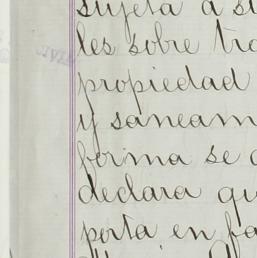 sujeta a su
les sobre tra
propiedad
y saneam
forma se o
declara qu
porta en fa